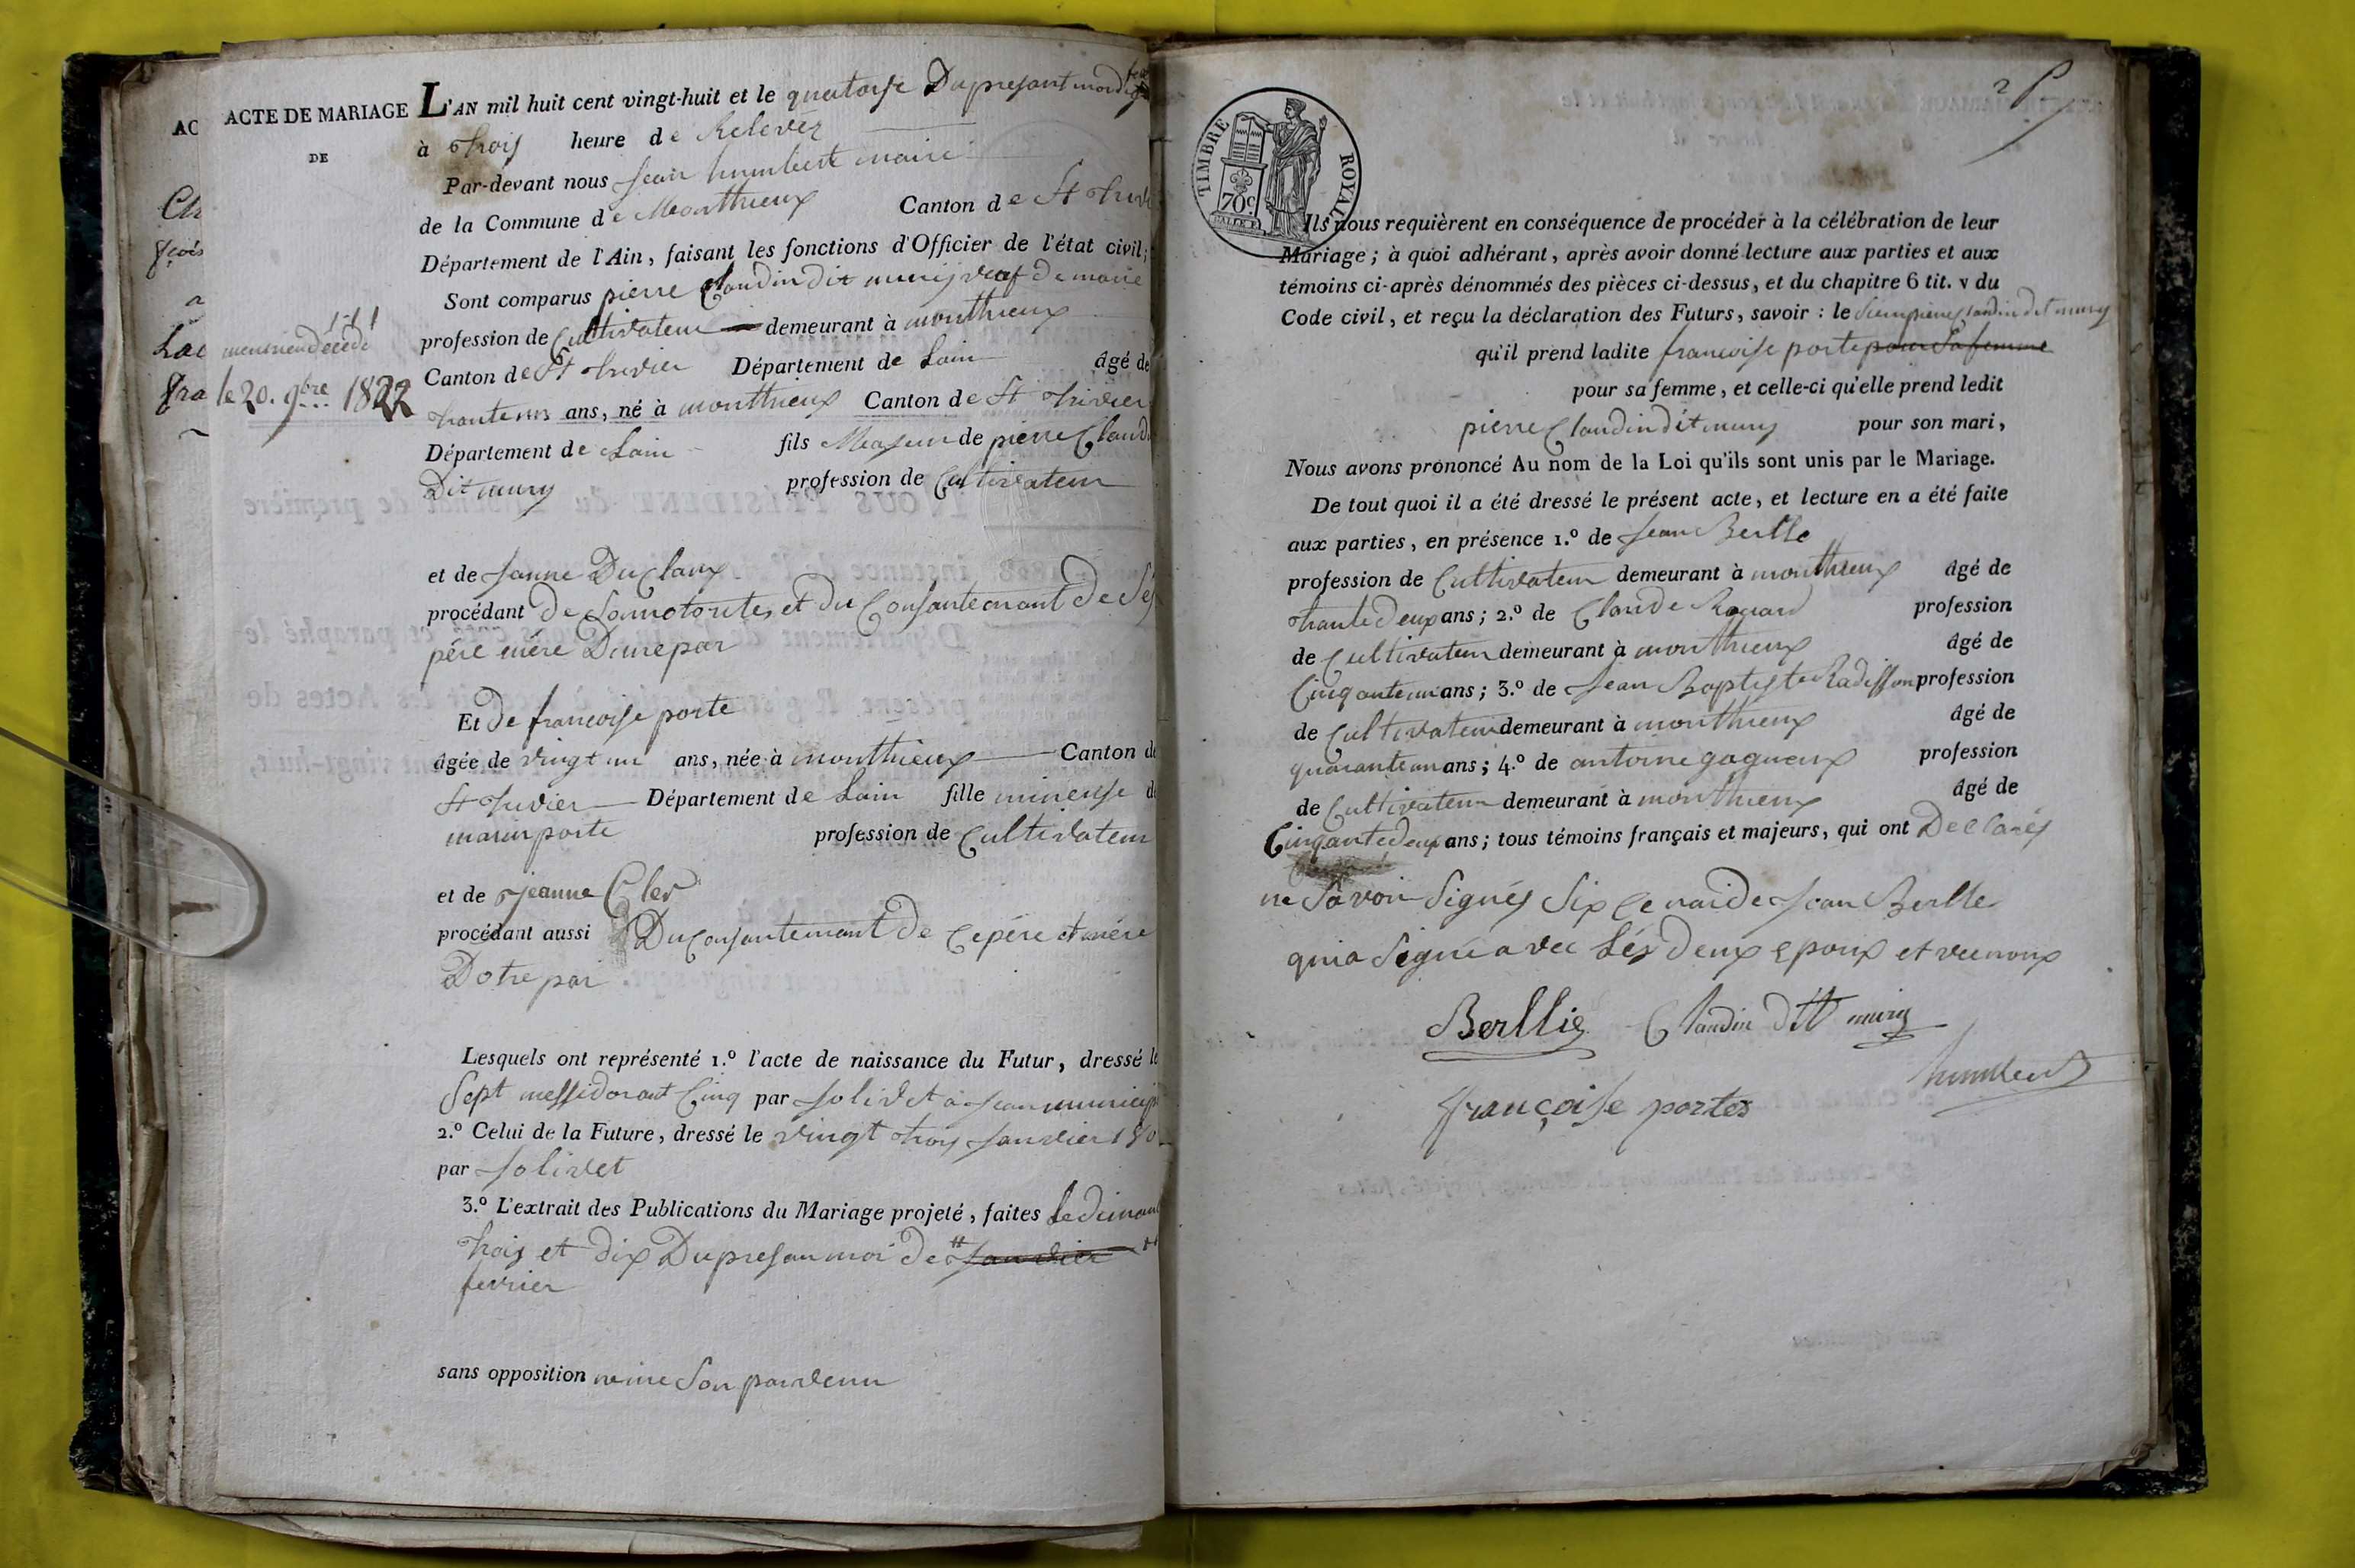 AC
Ch
fçois
Lac
fra
ACTE DE MARIAGE
DE
L'AN mil huit cent vingt-huit et le quatorse Dupresant
à Trois heure de Relevez
Par-devant nous Jean humbert maire
de la Commune de Monthieux Canton de St Trivi
Département de l'Ain, faisant les fonctions d'Officier de l'état civil;
Sont comparus pierre Claudin dit mury veaf de marie
meunier décédé
le 20. 9bre 1822
profession de Cultivateur demeurant à monthieux
Canton de St trivier Département de Lain âgé de
ans, né à monthieux Canton de St trivier
Département de Lain fils Majeur de pierre Claudi
Dit mury profession de Cultivateur
et de Janne DuClaux
procédant De et du Consantemant De Séf
père mère Dunepar
Et De francoise porte
âgée de vingt un ans, née à monthieux Canton de
St trivier Département de Lain fille mineuse de
porte profession de Cultivateur
et de jeanne Cler
procédant aussi Duconsantemant De Cepére et mére
Dotre par
Lesquels ont représenté 1.º l'acte de naissance du Futur, dressé le
Sept messidorant Cinq par Jolivet
2.º Celui de la Future, dressé le vingt trois Janvier 180
par Jolivet
3.º L'extrait des Publications du Mariage projeté, faites Ledimanc
trois et dix Dupresan moi De Janvier
fevrier
sans opposition
2
TIMBRE ROYAL
70c
Ils nous requièrent en conséquence de procéder à la célébration de leur
Mariage; à quoi adhérant, après avoir donné lecture aux parties et aux
témoins ci-après dénommés des pièces ci-dessus, et du chapitre 6 tit. v du
Code civil, et reçu la déclaration des Futurs, savoir: le Sieur pierre Claudin dit mury
qu'il prend ladite francoise porte pour Sa femme
pour sa femme, et celle-ci qu'elle prend ledit
pierre Claudin dit mury pour son mari,
Nous avons prononcé Au nom de la Loi qu'ils sont unis par le Mariage.
De tout quoi il a été dressé le présent acte, et lecture en a été faite
aux parties, en présence 1.º de Jean Berlle
profession de Cultivateur demeurant à monthieux âgé de
trante Deux ans; 2.º de Claude profession
de Cultivateur demeurant à monthieux âgé de
Cinqante un ans; 3.º de Jean Baptiste Radisson profession
de Cultivateur demeurant à monthieux âgé de
quarante un ans; 4.º de antoine gagneux profession
de Cultivateur demeurant à monthieux âgé de
Cinqante deux ans; tous témoins français et majeurs, qui ont Declarés
ne Savoir Signés Six Ce nai de Jean Berlle
qui a Signé avec Lés Deux Epoux et vecnous
Berllie Claudin dit mury
humbert
françoise portes